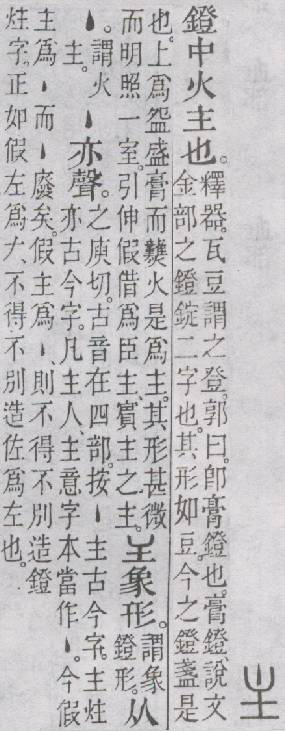 主
鐙中火主也。釋器。瓦豆謂之登。郭曰。卽膏鐙也。膏鐙、說文
金部之鐙錠二字也。其形如豆。今之鐙盞是
也。上爲盌盛膏而㸐火是爲主。其形甚微
而明照一室。引伸假借爲臣主、賓主之主。
主象形。謂象
鐙形。从
丶。謂火
主。丶亦聲。之庾切。古音在四部。按丶主古今字。主炷
亦古今字。凡主人、主意字本當作丶。今假
主爲丶而丶廢矣。假主爲丶、則不得不別造鐙
炷字。正如假左爲𠂇、不得不別造佐爲左也。